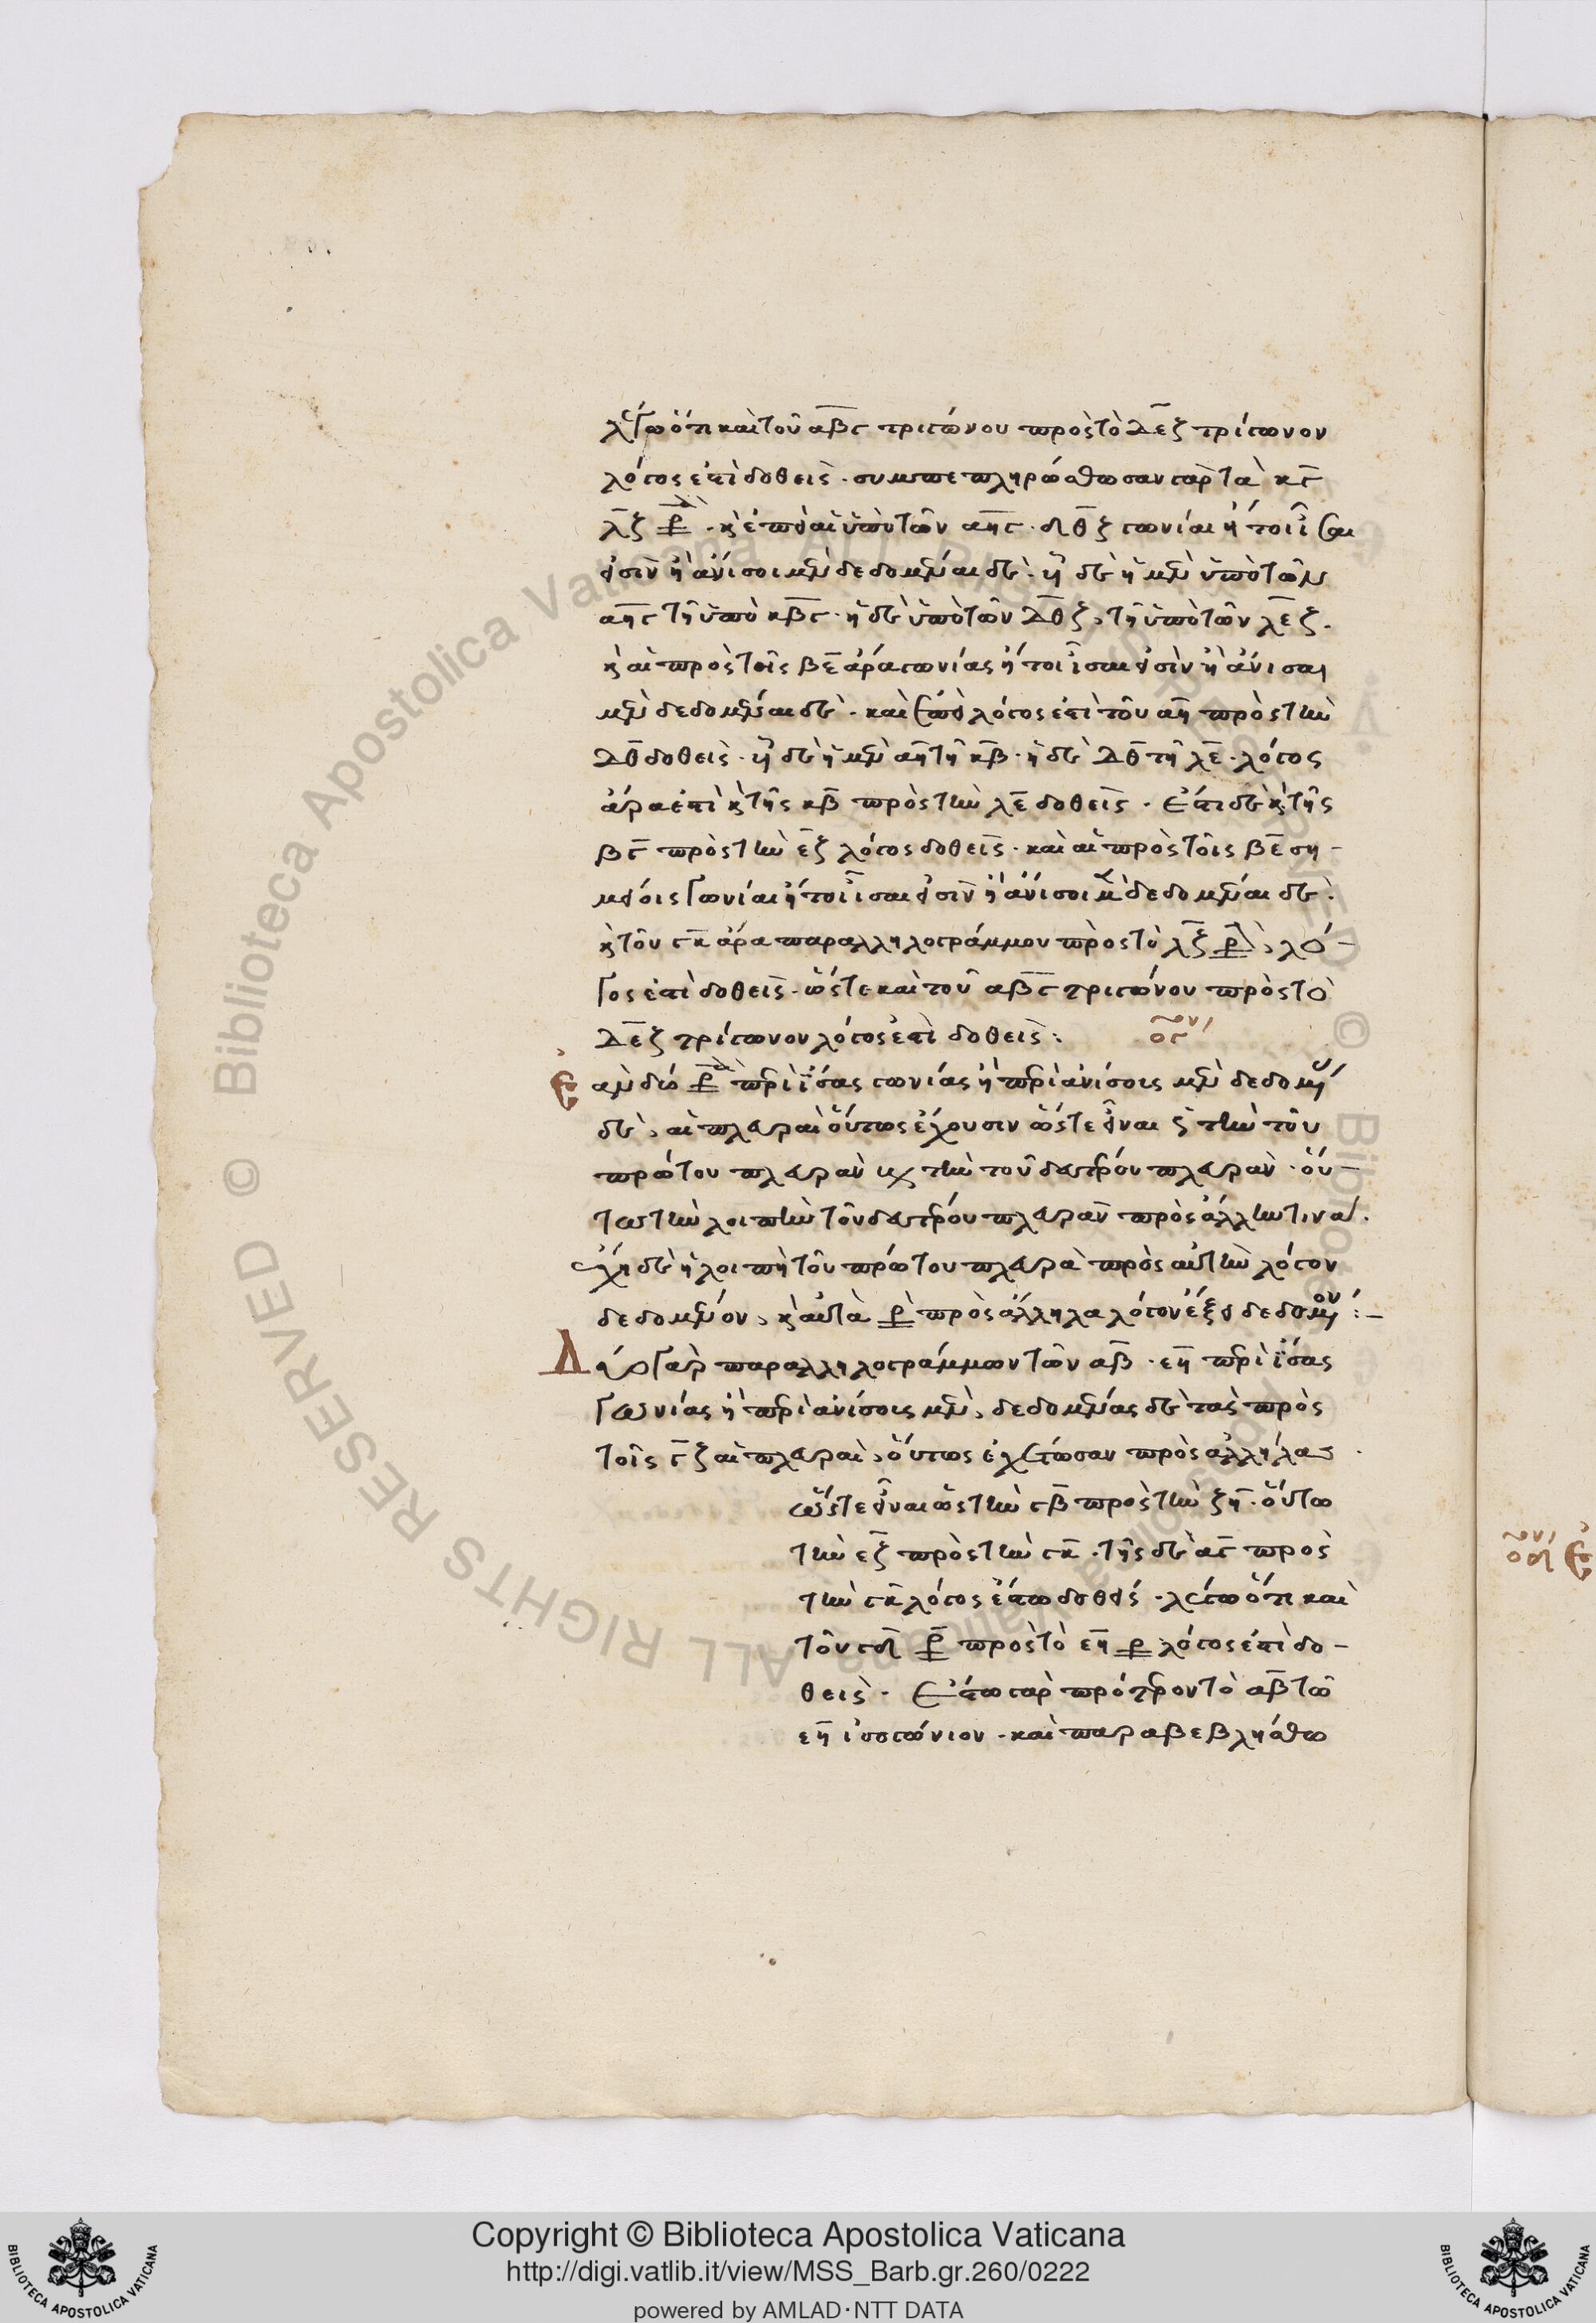 λέγω ὅτι καὶ τοῦ αβγ τριγώνου πρὸς τὸ δεζ τρίγωνον
λόγος ἐστὶ δοθείς· συμπεπληρώσθωσαν γὰρ τὰ κγ
λζ · κ ἐπεὶ αἱ ὑπὸ τῶν αηγ · δθζ γωνίαι ἤτοι ἴσαι
εἰσὶν ἢ ἄνισοι μὲν δεδομέναι δέ· ἡ δὲ ἡ μὲν ὑπὸ τῶν
αηγ τῇ ὑπὸ κβγ · ἡ δὲ ὑπὸ τῶν δθζ, τῇ ὑπὸ τῶν λεζ.
κ αἱ πρὸς τοῖς βε ἄρα γωνίας ἤτοι ἴσαι εἰσὶν ἢ ἄνισοι
μὲν δεδομέναι δέ· καὶ ἐπεὶ λόγος ἐστὶ τοῦ αη πρὸς τὴν
δθ δοθείς· ἡ δὲ ἡ μὲν αη τῇ κβ · ἡ δὲ δθ τῇ λε · λόγος
ἄρα ἐστὶ κ τῆς κβ πρὸς τὴν λε δοθείς · ἔστι δὲ κ τῆς
βγ πρὸς τὴν εζ λόγος δοθείς · καὶ αἱ πρὸς τοῖς βε ση-
μείοις γωνίαι ἤτοι ἴσαι εἰσὶν ἢ ἄνισοι μὲν δεδομέναι δέ·
κ τοῦ γκ ἄρα παραλληλογράμμου πρὸς τὸ λζ , λό-
γος ἐστὶ δοθείς · ὥστε καὶ τοῦ αβγ τριγώνου πρὸς τὸ
δεζ τρίγωνον λόγος ἐστὶ δοθείς:
Ἐὰν δύο περὶ ἴσας γωνίας ἢ περὶ ἀνίσοις μὲν δεδομένας
δὲ, αἱ πλευραὶ οὕτως ἔχουσιν ὥστε εἶναι ὡς τὴν τοῦ
πρώτου πλευρὰν πρὸς τὴν τοῦ δευτέρου πλευρὰν · οὕ-
τω τὴν λοιπὴν τοῦ δευτέρου πλευρὰν πρὸς ἄλλην τινά.
ἔχῃ δὲ ἡ λοιπὴ τοῦ πρώτου πλευρὰ πρὸς αὐτὴν λόγον
δεδομένον, κ αὐτὰ πρὸς ἄλληλα λόγον ἕξει δεδομένον :-
Δύο γὰρ παραλληλογράμμων τῶν αβ · εη περὶ ἴσας
γωνίας ἢ περὶ ἀνίσοις μὲν, δεδομένας δὲ τὰς πρὸς
τοῖς γζ αἱ πλευραὶ, οὕτως ἐχέτωσαν πρὸς ἀλλήλας ·
ὥστε εἶναι ὡς τὴν γβ πρὸς τὴν ζη · οὕτω
τὴν εζ πρὸς τὴν γκ · τῆς δὲ αγ πρὸς
τὴν γκ λόγος ἔστω δοθείς · λέγω ὅτι καὶ
τοῦ γδ πρὸς τὸ εη λόγος ἐστὶ δο-
θείς · Ἔστω γὰρ πρότερον τὸ αβ τῷ
εη ἰσογώνιον · καὶ παραβεβλήσθω
Copyright © Biblioteca Apostolica Vaticana
http://digi.vatlib.it/view/MSS_Barb.gr.260/0222
powered by AMLAD·NTT DATA